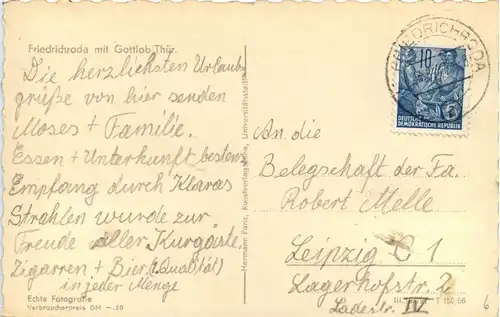 Friedrichroda mit Gottlob Thür.
Die herzlichsten Urlaubs
grüße von hier senden
Moses + Familie.
Essen + Unterkunft bestens,
Empfang durch Klaras
Strahlen wurde zur
Freude aller Kurgäste.
Zigarren + Bier (1. Qualität)
in jeder Menge
Echte Fotografie
Verbraucherpreis DM -.20
Hermann Paris, Kunstverlagsanstalt, Universitätsstadt
FRIEDRICHRODA
10
DEUTSCHE
DEMOKRATISCHE REPUBLIK
An die
Belegschaft der Fa.
Robert Melle
Leipzig C 1
Lagerhofstr. 2
Ladestr. IV
6